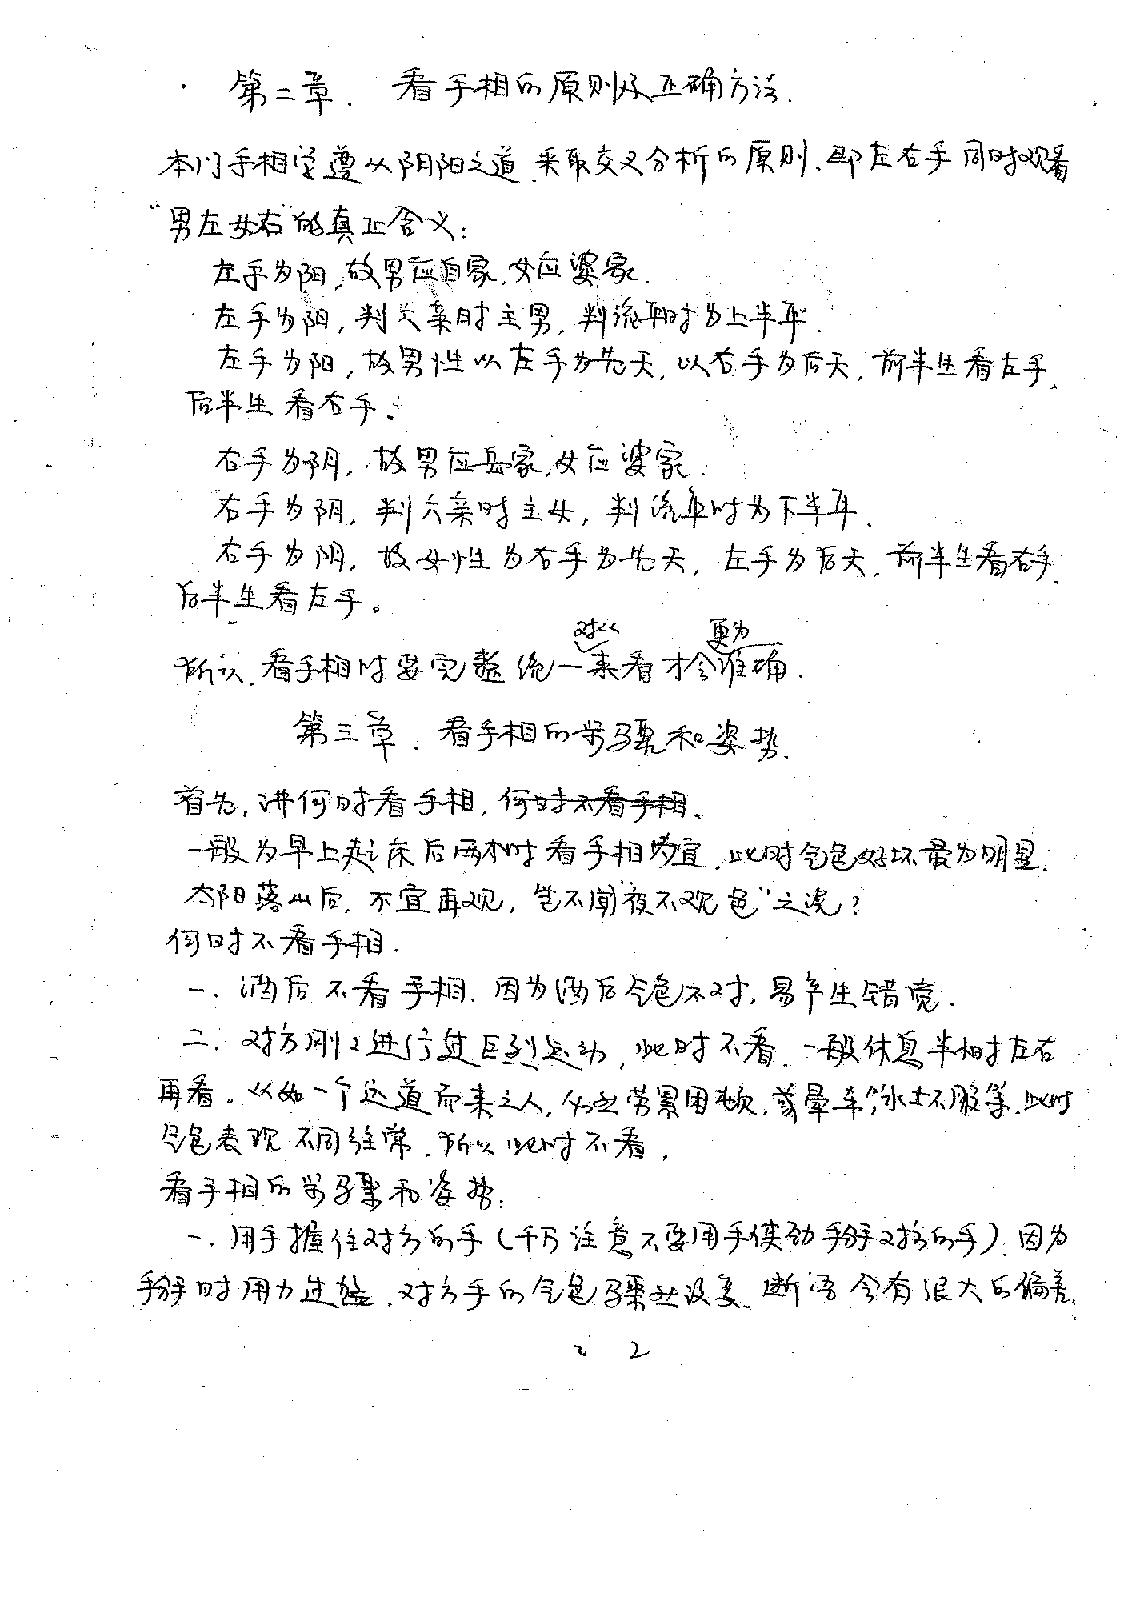 第二章. 看手相的原则及正确方法.
本门手相学遵从阴阳之道,采取交叉分析的原则,即左右手同时观看
“男左女右”的真正含义:
左手为阳,故男应自家,女应婆家.
左手为阳,判六亲时主男,判流年时为上半年.
左手为阳,故男性以左手为先天,以右手为后天,前半生看左手,
后半生看右手.
右手为阴,故男应岳家,女应婆家.
右手为阴,判六亲时主女,判流年时为下半年.
右手为阴,故女性为右手为先天,左手为后天,前半生看右手,
后半生看左手。
对比 更为
所以,看手相时要完整统一来看才会准确.
第三章. 看手相的步骤和姿势.
首先,讲何时看手相,何时不看手相.
一般为早上起床后两小时看手相为宜,此时气色好坏最为明显.
太阳落山后,不宜再观,岂不闻“夜不观色”之说?
何时不看手相.
一、酒后不看手相,因为酒后气色不对,易产生错觉.
二、对方刚刚进行过巨烈运动,此时不看,一般休息半小时左右
再看。从如一个远道而来之人,必也劳累困顿,或晕车,水土不服等,此时
气色表现不同往常,所以此时不看,
看手相的步骤和姿势:
一、用手握住对方的手(千万注意不要用手使劲掰对方的手),因为
掰时用力过猛,对方手的气色骤然改变,断语会有很大的偏差,
2 2